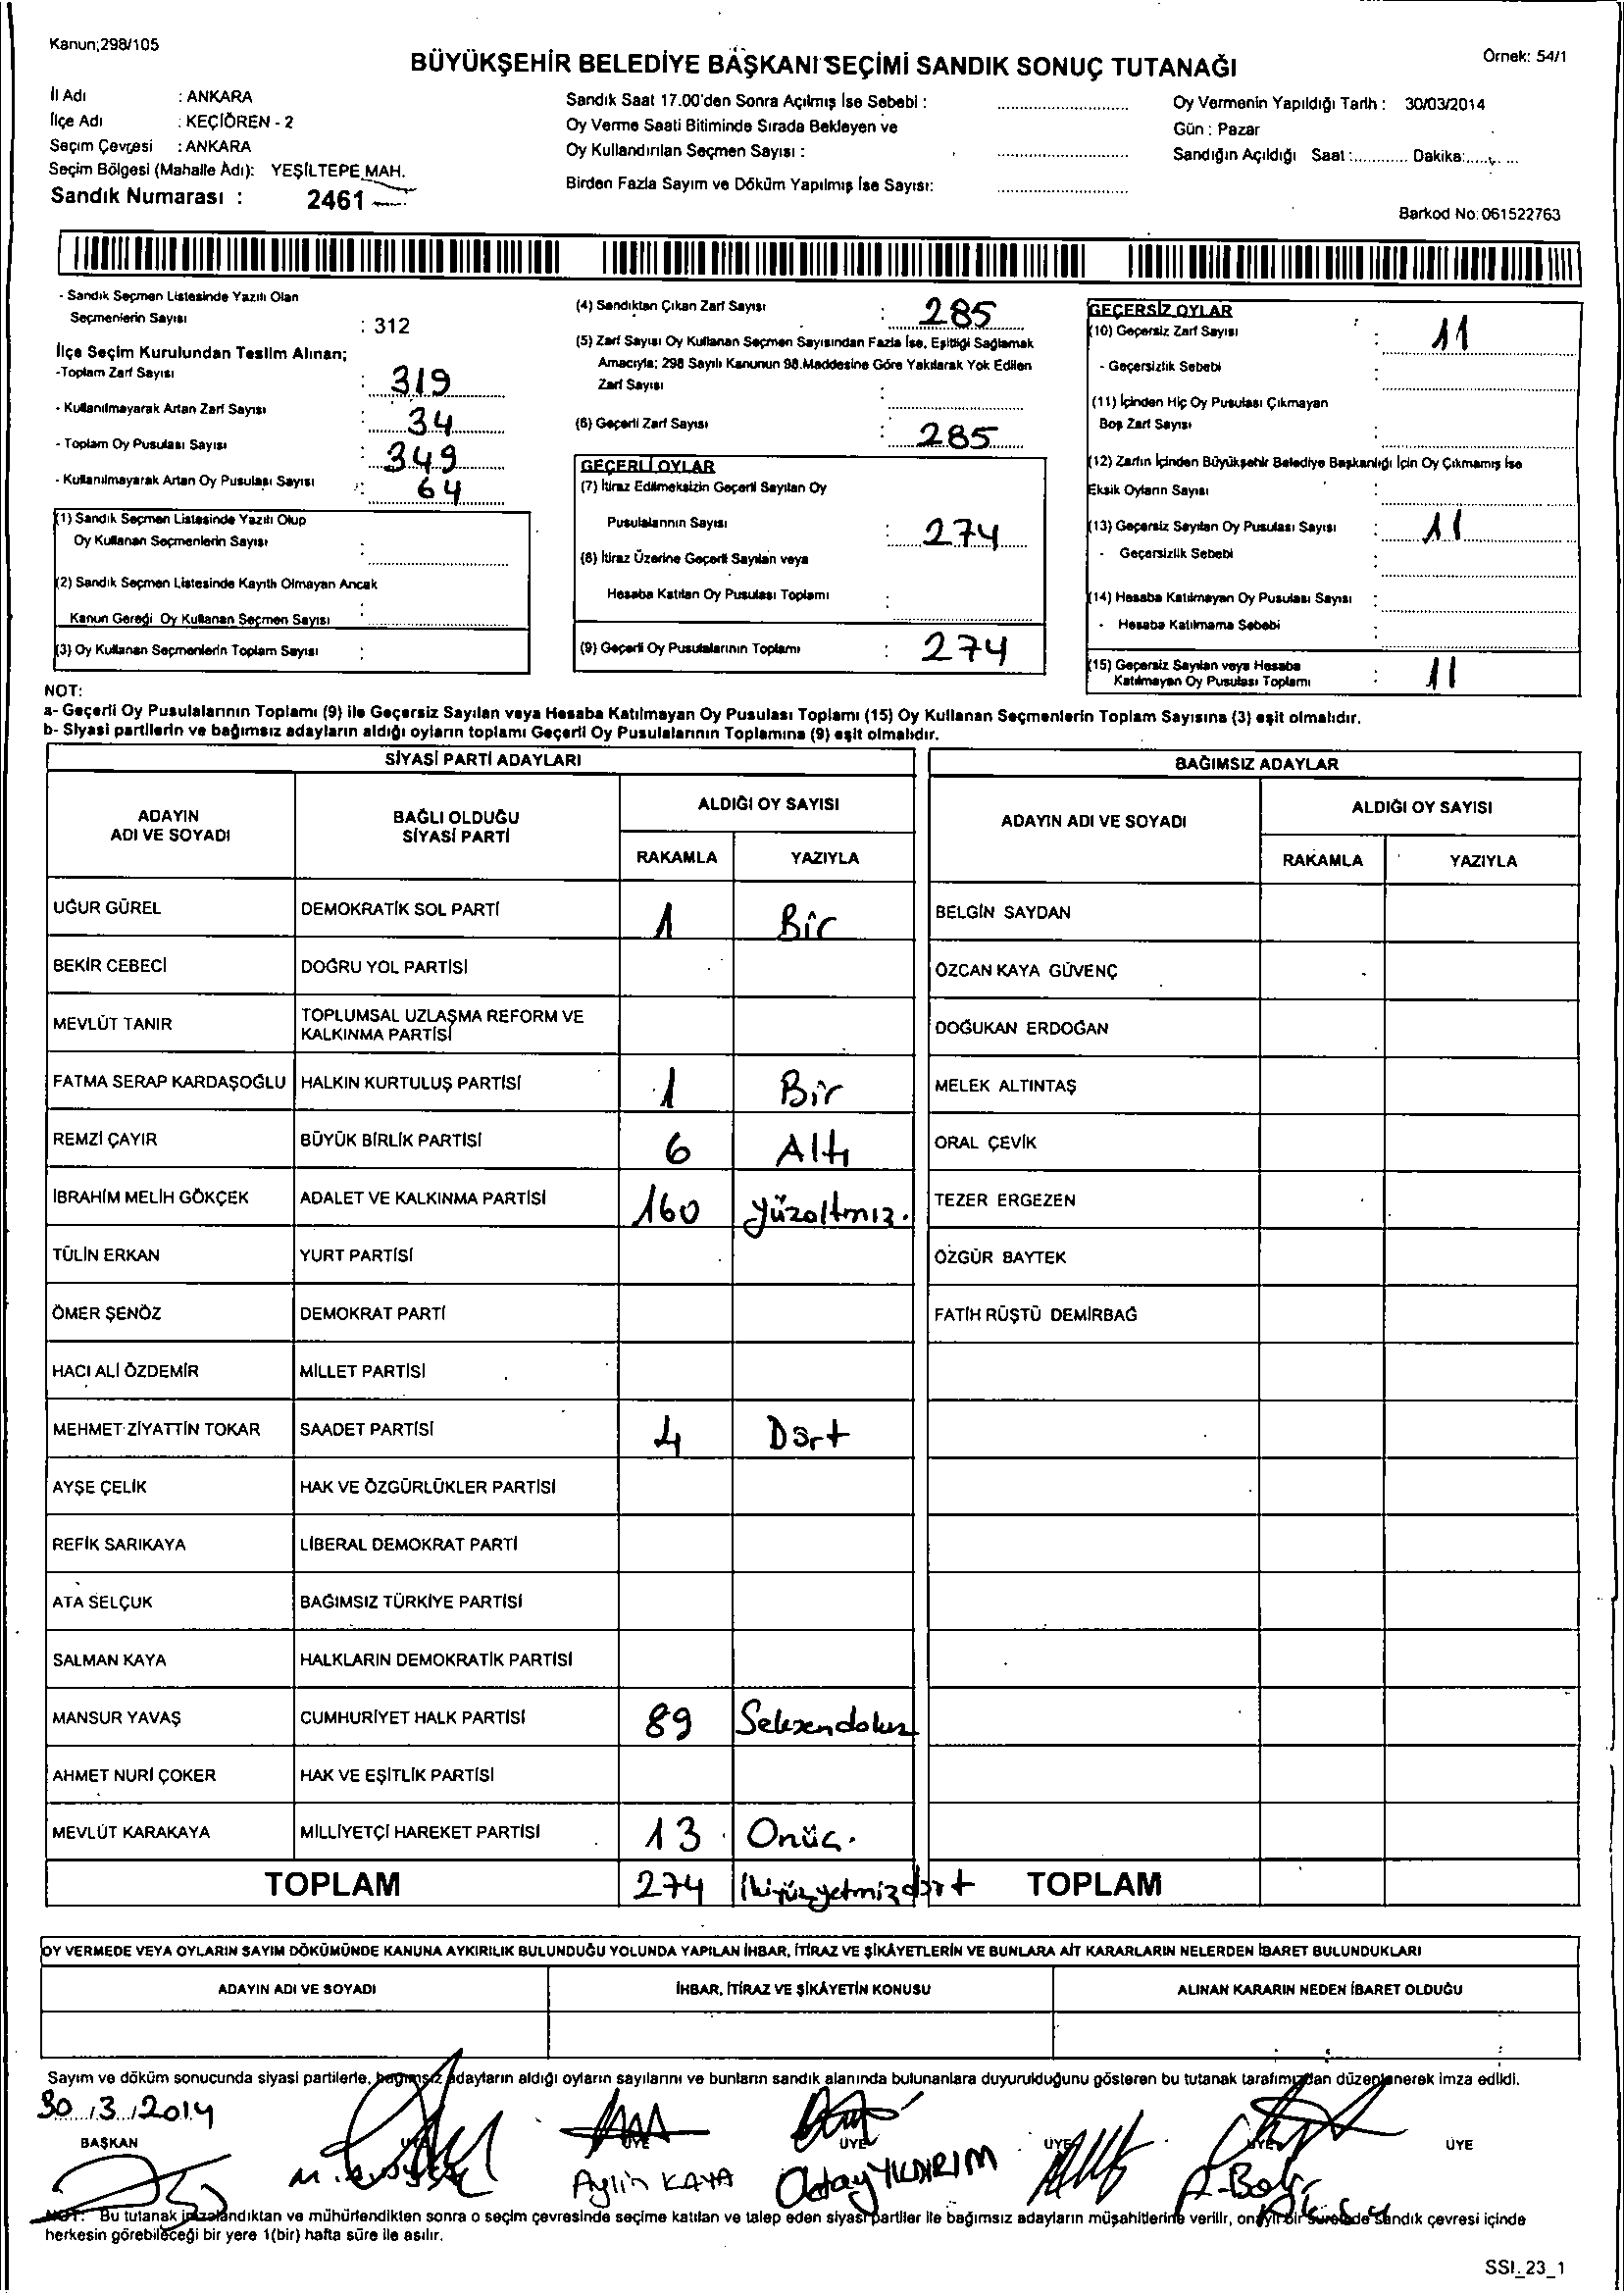 Kanun;298/105
Örnek: 54/1
BÜYÜKŞEHİR BELEDİYE BAŞKANI SEÇİMİ SANDIK SONUÇ TUTANAĞI
İl Adı : ANKARA
İlçe Adı : KEÇİÖREN - 2
Seçim Çevresi : ANKARA
Seçim Bölgesi (Mahalle Adı): YEŞİLTEPE MAH.
Sandık Numarası : 2461
Sandık Saat 17.00'den Sonra Açılmış İse Sebebi :
Oy Verme Saati Bitiminde Sırada Bekleyen ve
Oy Kullandırılan Seçmen Sayısı :
Birden Fazla Sayım ve Döküm Yapılmış İse Sayısı:
Oy Vermenin Yapıldığı Tarih : 30/03/2014
Gün : Pazar
Sandığın Açıldığı Saat :............ Dakika:............
Barkod No: 061522763
- Sandık Seçmen Listesinde Yazılı Olan
Seçmenlerin Sayısı : 312
İlçe Seçim Kurulundan Teslim Alınan;
-Toplam Zarf Sayısı : 319
- Kullanılmayarak Artan Zarf Sayısı : 34
- Toplam Oy Pusulası Sayısı : 349
- Kullanılmayarak Artan Oy Pusulası Sayısı : 64
(1) Sandık Seçmen Listesinde Yazılı Olup
Oy Kullanan Seçmenlerin Sayısı :
(2) Sandık Seçmen Listesinde Kayıtlı Olmayan Ancak
Kanun Gereği Oy Kullanan Seçmen Sayısı :
(3) Oy Kullanan Seçmenlerin Toplam Sayısı :
(4) Sandıktan Çıkan Zarf Sayısı : 285
(5) Zarf Sayısı Oy Kullanan Seçmen Sayısından Fazla İse, Eşitliği Sağlamak
Amacıyla; 298 Sayılı Kanunun 98.Maddesine Göre Yakılarak Yok Edilen
Zarf Sayısı :
(6) Geçerli Zarf Sayısı : 285
GEÇERLİ OYLAR
(7) İtiraz Edilmeksizin Geçerli Sayılan Oy
Pusulalarının Sayısı : 274
(8) İtiraz Üzerine Geçerli Sayılan veya
Hesaba Katılan Oy Pusulası Toplamı :
(9) Geçerli Oy Pusulalarının Toplamı : 274
GEÇERSİZ OYLAR
(10) Geçersiz Zarf Sayısı : 11
- Geçersizlik Sebebi :
(11) İçinden Hiç Oy Pusulası Çıkmayan
Boş Zarf Sayısı :
(12) Zarfın İçinden Büyükşehir Belediye Başkanlığı İçin Oy Çıkmamış İse
Eksik Oyların Sayısı :
(13) Geçersiz Sayılan Oy Pusulası Sayısı : 11
- Geçersizlik Sebebi :
(14) Hesaba Katılmayan Oy Pusulası Sayısı :
- Hesaba Katılmama Sebebi :
(15) Geçersiz Sayılan veya Hesaba
Katılmayan Oy Pusulası Toplamı : 11
NOT:
a- Geçerli Oy Pusulalarının Toplamı (9) ile Geçersiz Sayılan veya Hesaba Katılmayan Oy Pusulası Toplamı (15) Oy Kullanan Seçmenlerin Toplam Sayısına (3) eşit olmalıdır.
b- Siyasi partilerin ve bağımsız adayların aldığı oyların toplamı Geçerli Oy Pusulalarının Toplamına (9) eşit olmalıdır.
SİYASİ PARTİ ADAYLARI
ADAYIN ADI VE SOYADI BAĞLI OLDUĞU SİYASİ PARTİ ALDIĞI OY SAYISI
RAKAMLA YAZIYLA
UĞUR GÜREL DEMOKRATİK SOL PARTİ 1 Bir
BEKİR CEBECİ DOĞRU YOL PARTİSİ
MEVLÜT TANIR TOPLUMSAL UZLAŞMA REFORM VE KALKINMA PARTİSİ
FATMA SERAP KARDAŞOĞLU HALKIN KURTULUŞ PARTİSİ 1 Bir
REMZİ ÇAYIR BÜYÜK BİRLİK PARTİSİ 6 Altı
İBRAHİM MELİH GÖKÇEK ADALET VE KALKINMA PARTİSİ 160 Yüzaltmız.
TÜLİN ERKAN YURT PARTİSİ
ÖMER ŞENÖZ DEMOKRAT PARTİ
HACI ALİ ÖZDEMİR MİLLET PARTİSİ
MEHMET ZİYATTİN TOKAR SAADET PARTİSİ 4 Dört
AYŞE ÇELİK HAK VE ÖZGÜRLÜKLER PARTİSİ
REFİK SARIKAYA LİBERAL DEMOKRAT PARTİ
ATA SELÇUK BAĞIMSIZ TÜRKİYE PARTİSİ
SALMAN KAYA HALKLARIN DEMOKRATİK PARTİSİ
MANSUR YAVAŞ CUMHURİYET HALK PARTİSİ 89 Seksendokuz
AHMET NURİ ÇOKER HAK VE EŞİTLİK PARTİSİ
MEVLÜT KARAKAYA MİLLİYETÇİ HAREKET PARTİSİ 13 Onüç.
TOPLAM 274 İkiyüzyetmizdört
BAĞIMSIZ ADAYLAR
ADAYIN ADI VE SOYADI ALDIĞI OY SAYISI
RAKAMLA YAZIYLA
BELGİN SAYDAN
ÖZCAN KAYA GÜVENÇ
DOĞUKAN ERDOĞAN
MELEK ALTINTAŞ
ORAL ÇEVİK
TEZER ERGEZEN
ÖZGÜR BAYTEK
FATİH RÜŞTÜ DEMİRBAĞ
TOPLAM
OY VERMEDE VEYA OYLARIN SAYIM DÖKÜMÜNDE KANUNA AYKIRILIK BULUNDUĞU YOLUNDA YAPILAN İHBAR, İTİRAZ VE ŞİKÂYETLERİN VE BUNLARA AİT KARARLARIN NELERDEN İBARET BULUNDUKLARI
ADAYIN ADI VE SOYADI İHBAR, İTİRAZ VE ŞİKÂYETİN KONUSU ALINAN KARARIN NEDEN İBARET OLDUĞU
Sayım ve döküm sonucunda siyasi partilerle, bağımsız adayların aldığı oyların sayılarını ve bunların sandık alanında bulunanlara duyurulduğunu gösteren bu tutanak tarafımızdan düzenlenerek imza edildi.
30/3/2014
BAŞKAN ÜYE ÜYE ÜYE ÜYE ÜYE ÜYE
Aylin KAYA Oday YILDIRIM
NOT: Bu tutanak imzalandıktan ve mühürlendikten sonra o seçim çevresinde seçime katılan ve talep eden siyasi partiler ile bağımsız adayların müşahitlerine verilir, onaylı bir suretide sandık çevresi içinde
herkesin görebileceği bir yere 1(bir) hafta süre ile asılır.
SSI_23_1